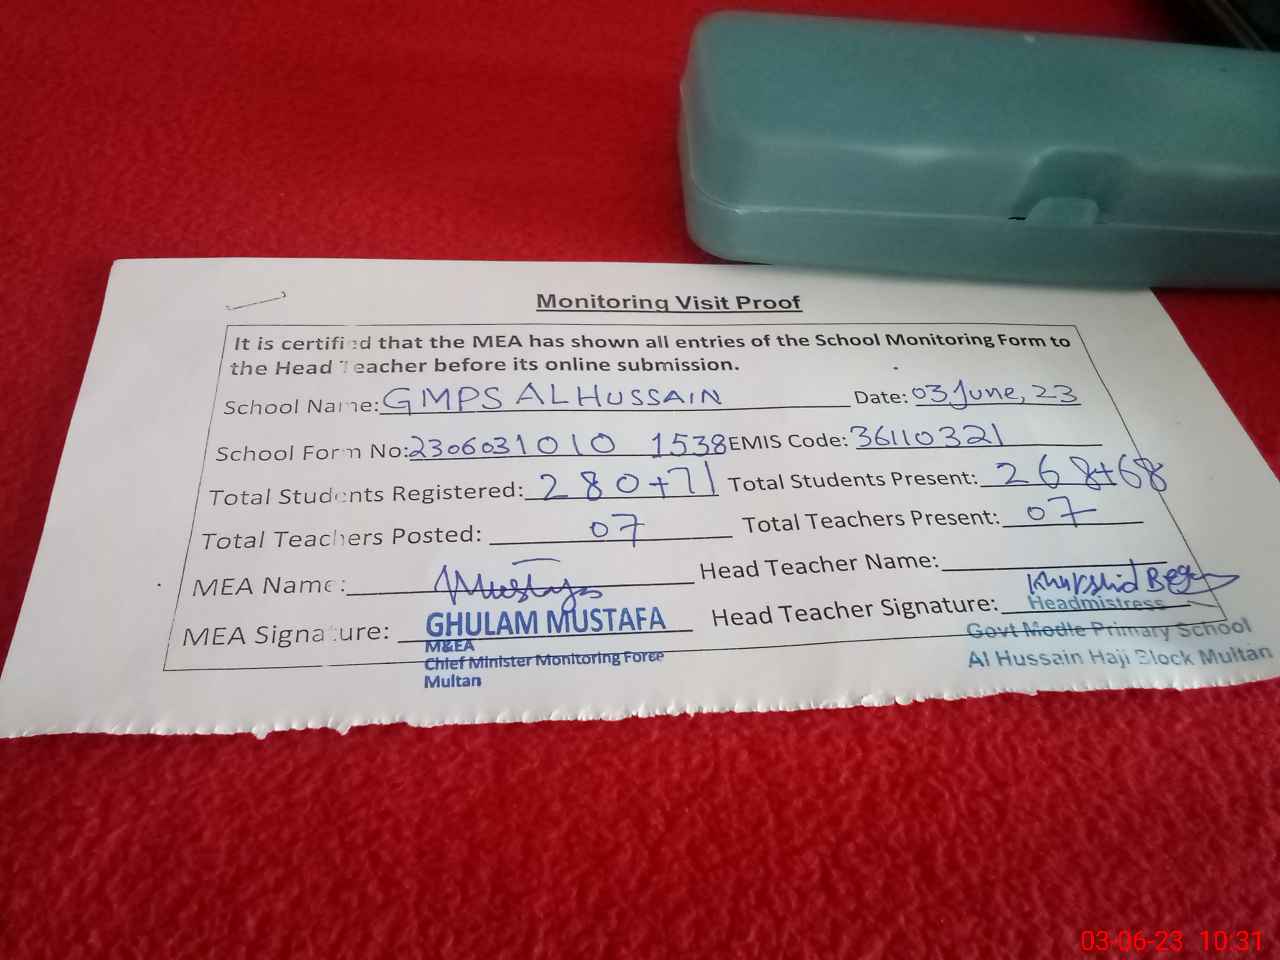 Monitoring Visit Proof
It is certified that the MEA has shown all entries of the School Monitoring Form to
the Head Teacher before its online submission.
School Name: GMPS ALHUSSAIN Date: 03 June, 23
School Form No: 2306031010 1538 EMIS Code: 36110321
Total Students Registered: 280+71 Total Students Present: 268+68
Total Teachers Posted: 07 Total Teachers Present: 07
MEA Name: Mustafa Head Teacher Name:
MEA Signature: Head Teacher Signature: Khurshid Begum
GHULAM MUSTAFA
M&EA
Chief Minister Monitoring Force
Multan
Headmistress
Govt Modle Primary School
Al Hussain Haji Block Multan
03-06-23 10:31